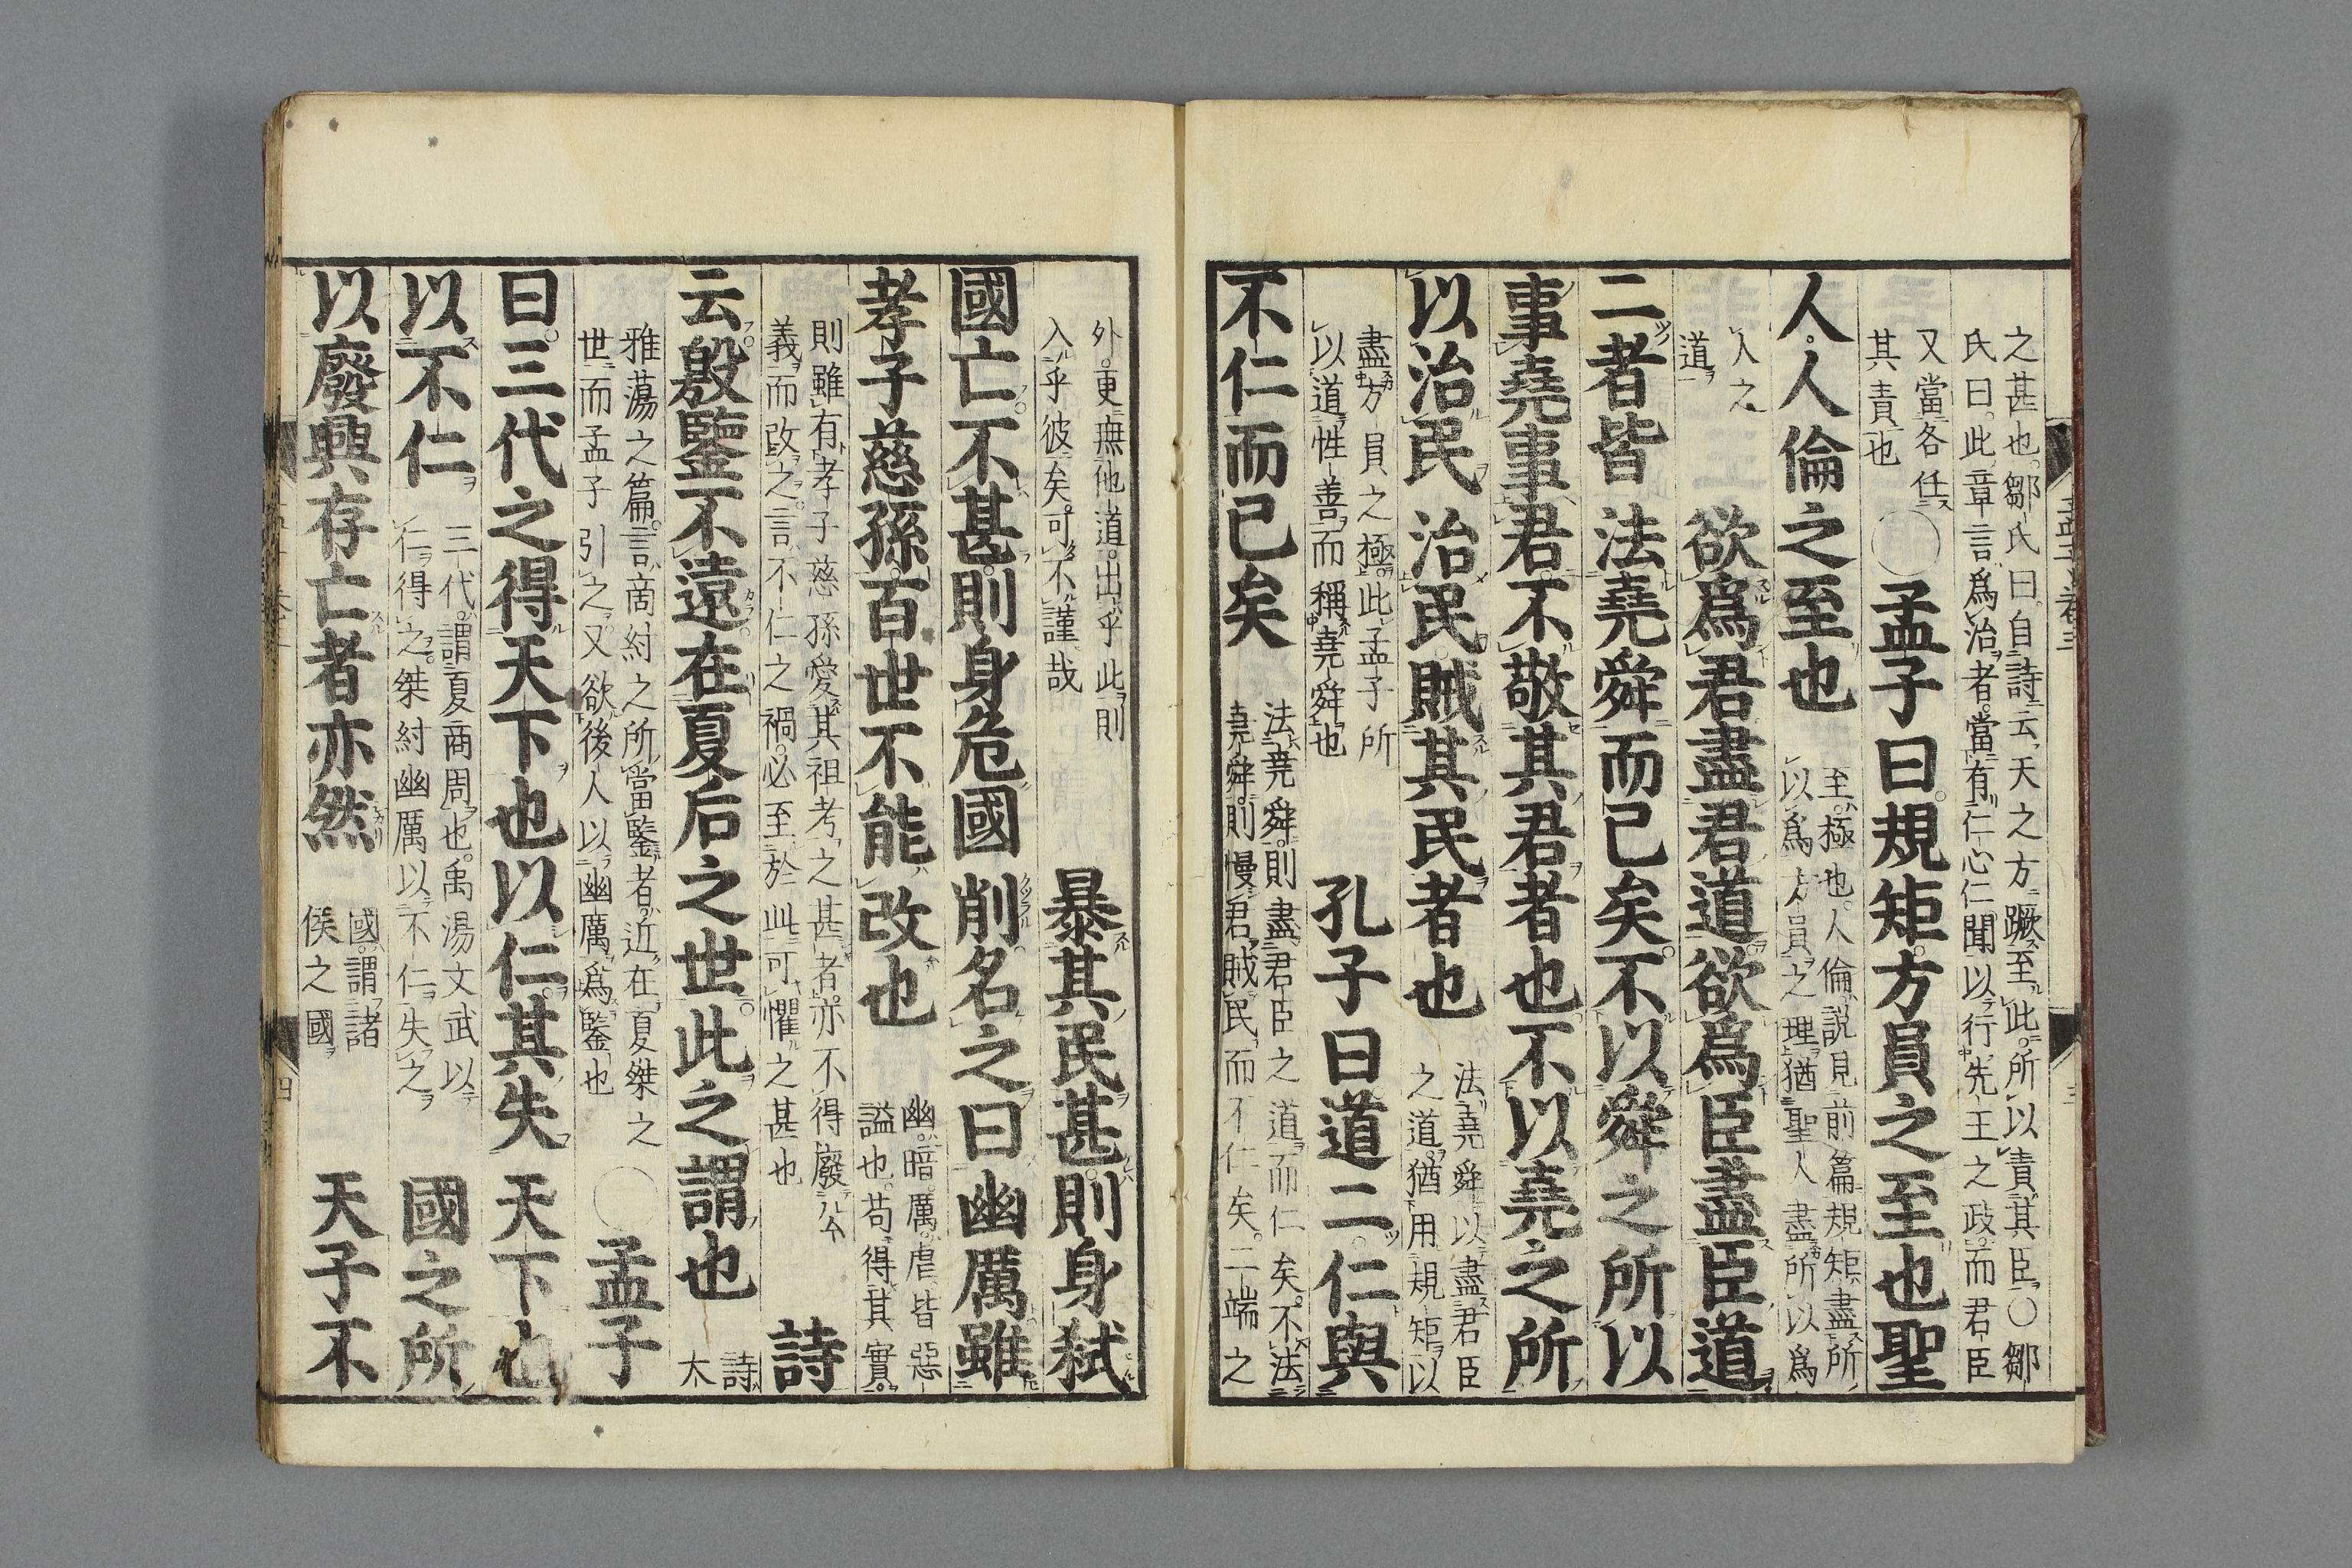 之甚也鄒氏曰自詩云天之方蹶至此所以責其臣○鄒
氏曰此章言爲治者當有仁心仁聞以行先王之政而君臣
又當各任
其責也
○孟子曰規矩方員之至也聖
人人倫之至也
至極也人倫說見前篇規矩盡所
以爲方員之理猶聖人盡所以爲
人之
道
欲爲君盡君道欲爲臣盡臣道
二者皆法堯舜而已矣不以舜之所以
事堯事君不敬其君者也不以堯之所
以治民治民賊其民者也
法堯舜以盡君臣
之道猶用規矩以
盡方員之極此孟子所
以道性善而稱堯舜也
孔子曰道二仁與
不仁而已矣
法堯舜則盡君臣之道而仁矣不法
堯舜則慢君賊民而不仁矣二端之
外更無他道出乎此則
入乎彼矣可不謹哉
暴其民甚則身弑
國亡不甚則身危國削名之曰幽厲雖
孝子慈孫百世不能改也
幽暗厲虐皆惡
謚也苟得其實
則雖有孝子慈孫愛其祖考之甚者亦不得廢公
義而改之言不仁之禍必至於此可懼之甚也
詩
云殷鑒不遠在夏后之世此之謂也
詩
大
雅蕩之篇言商紂之所當鑒者近在夏桀之
世而孟子引之又欲後人以幽厲爲鑒也
○孟子
曰三代之得天下也以仁其失天下也
以不仁
三代謂夏商周也禹湯文武以
仁得之桀紂幽厲以不仁失之
國之所
以廢興存亡者亦然
國謂諸
侯之國
天子不
四